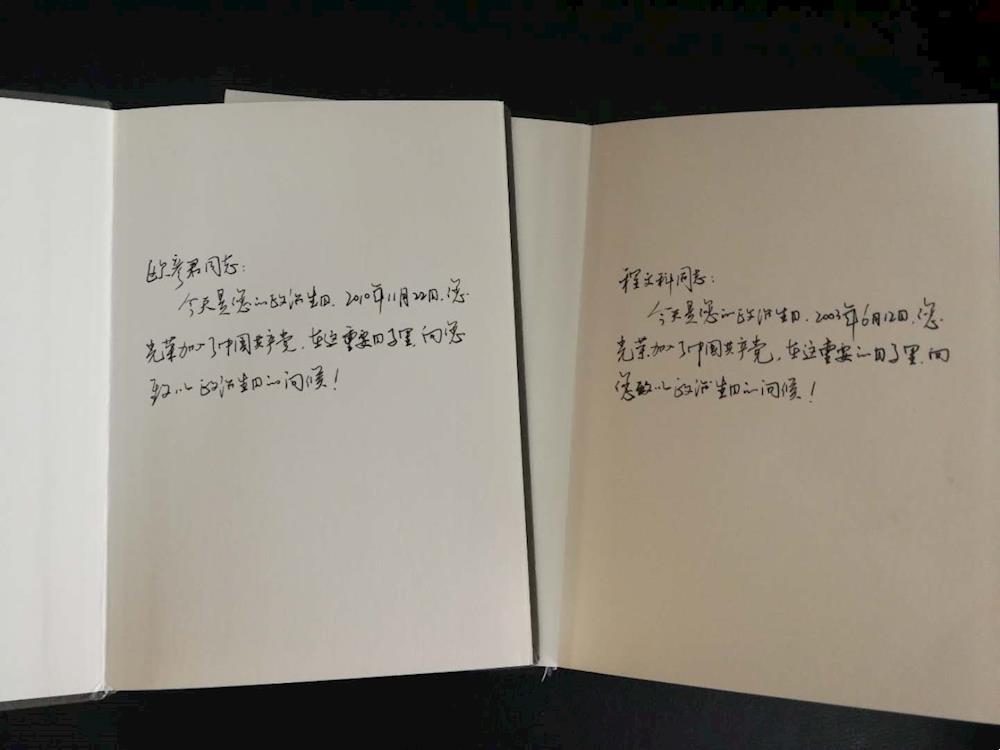 欧彦君同志：
今天是您的政治生日，2010年11月22日，您
光荣加入了中国共产党，在这重要日子里，向您
致以政治生日的问候！
程文科同志：
今天是您的政治生日，2003年6月12日，您
光荣加入了中国共产党，在这重要的日子里，向
您致以政治生日的问候！